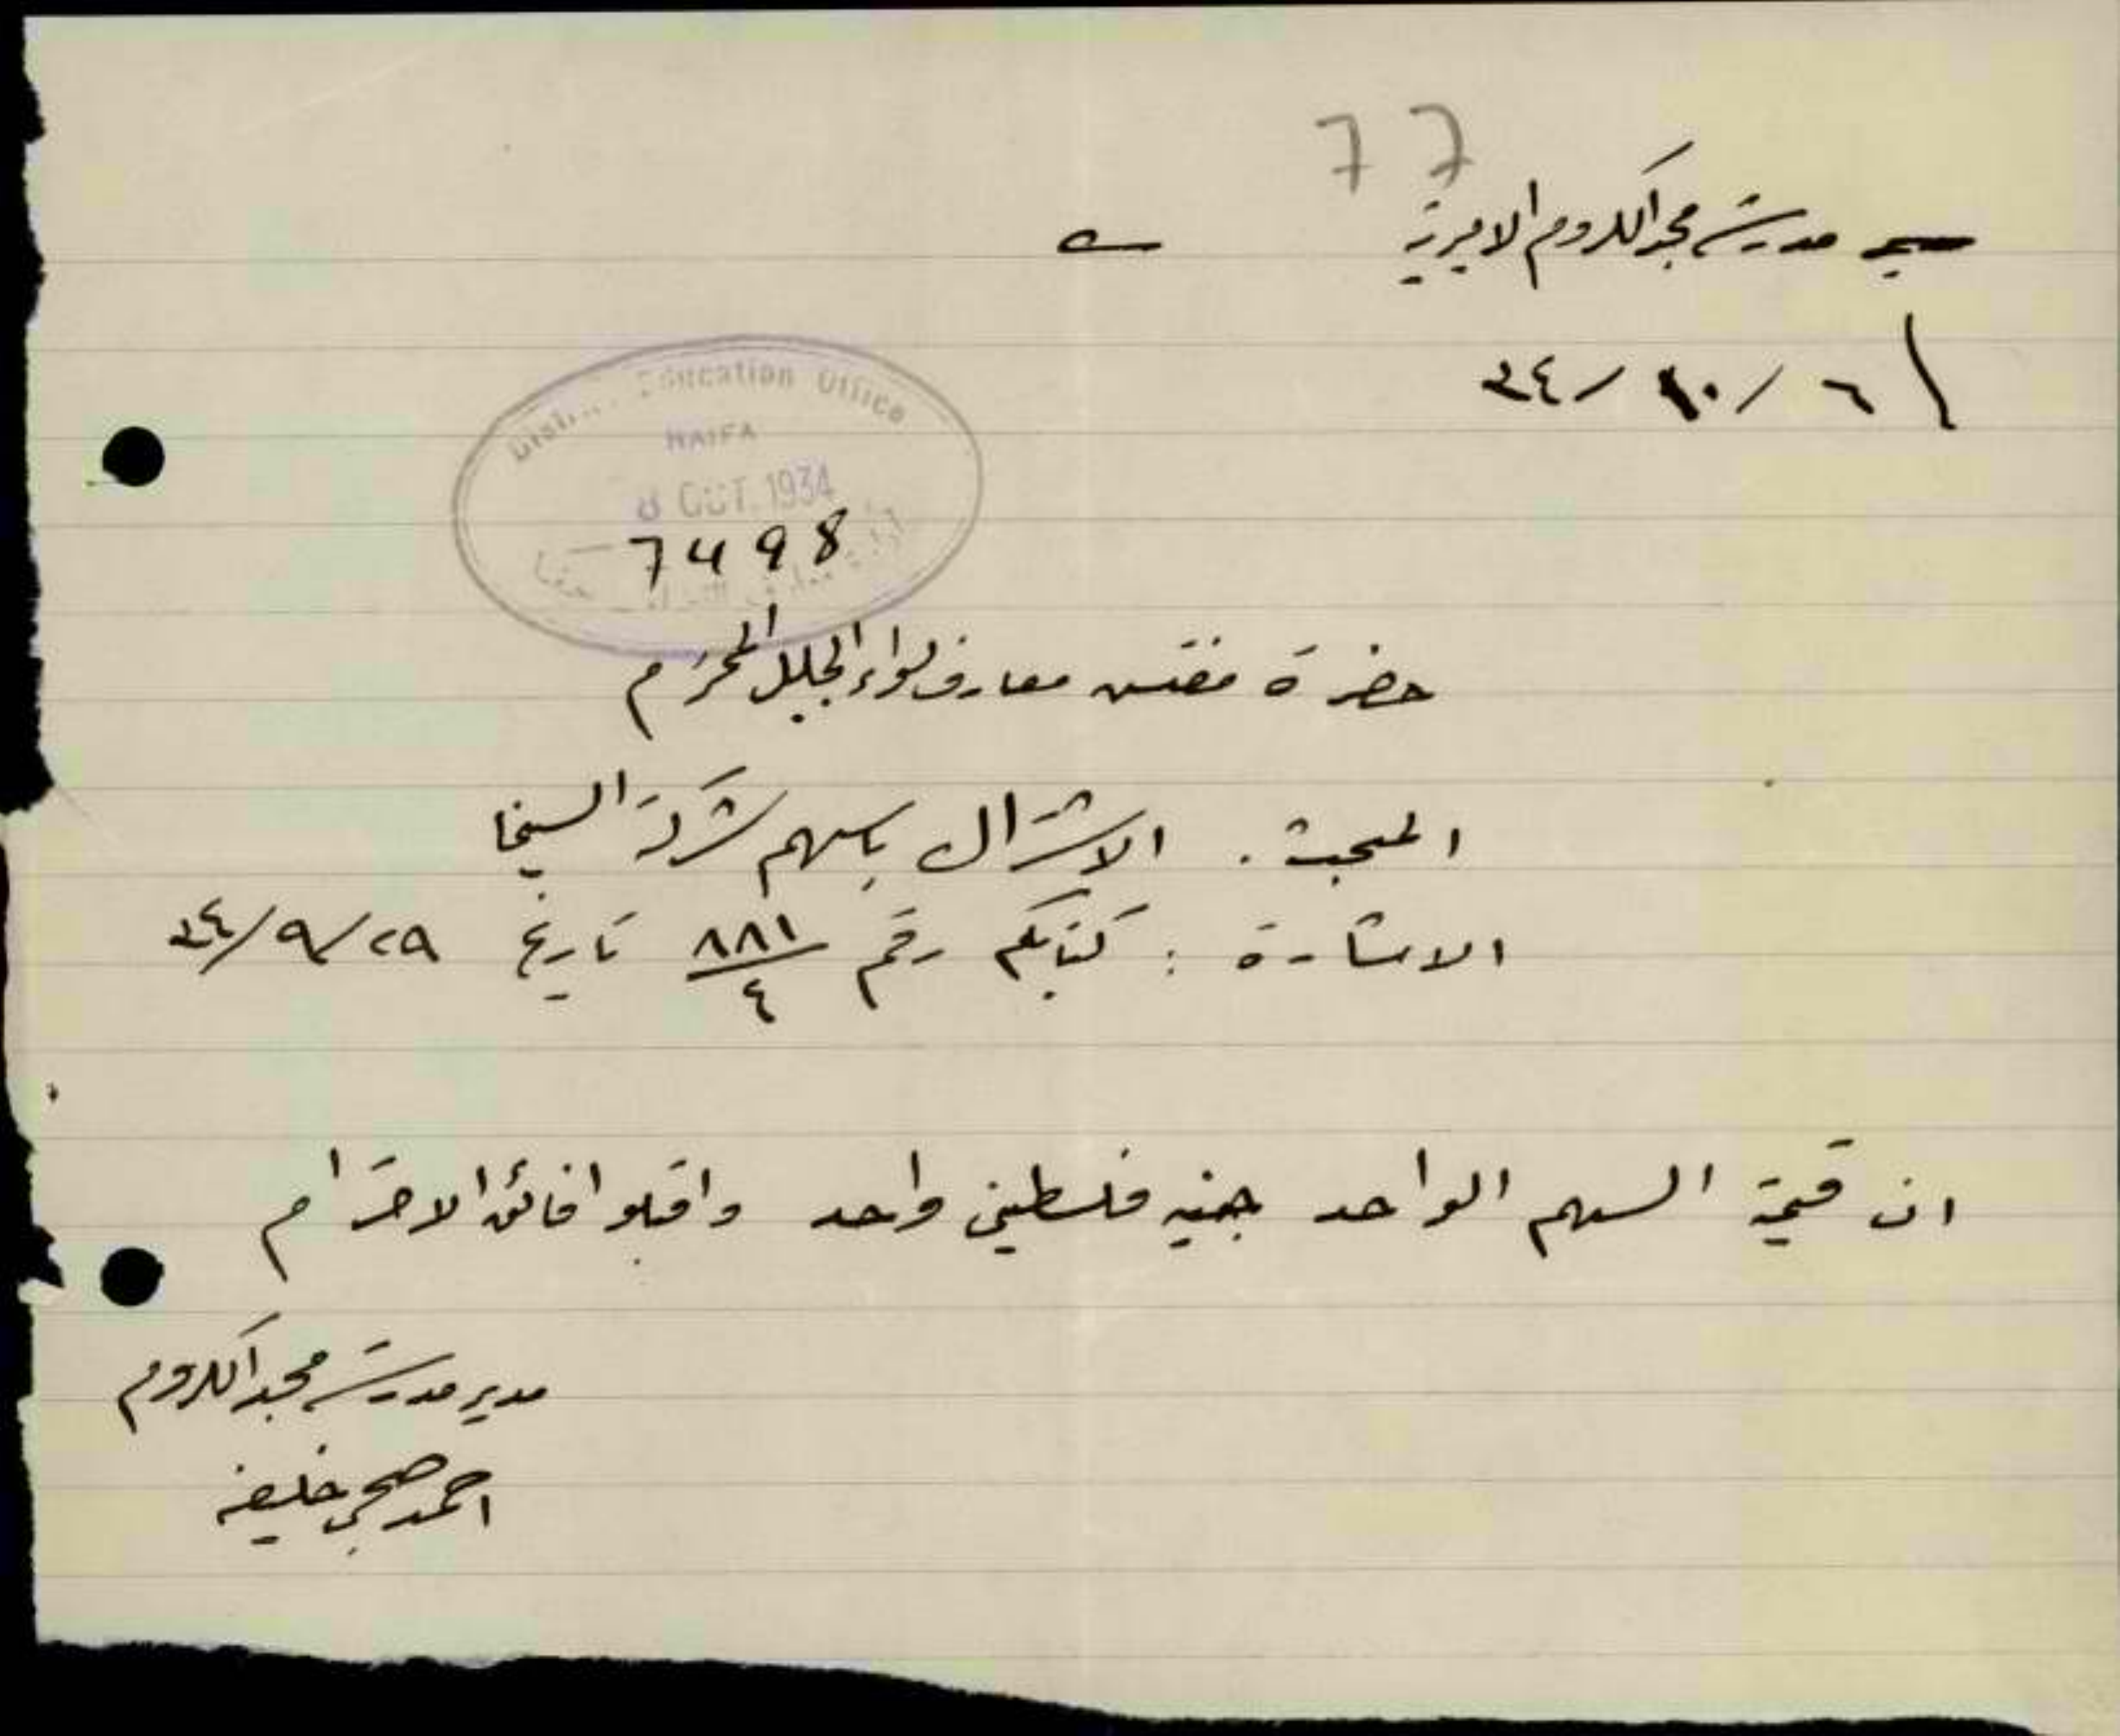 77
مدرسة مجد الكروم الاميرية
٦/١٠/٣٤
District Education Office
HAIFA
8 OCT. 1934
7498
حضرة مفتش معارف لواء الجليل المحترم
المبحث . الاشتراك باسهم شركة السينما
الاشارة : كتابكم رقم ٨٨١/٤ تاريخ ٢٩/٩/٣٤
ان قيمة السهم الواحد جنيه فلسطيني واحد واقبلوا فائق الاحترام
مدير مدرسة مجد الكروم
احمد صبحي خليفه